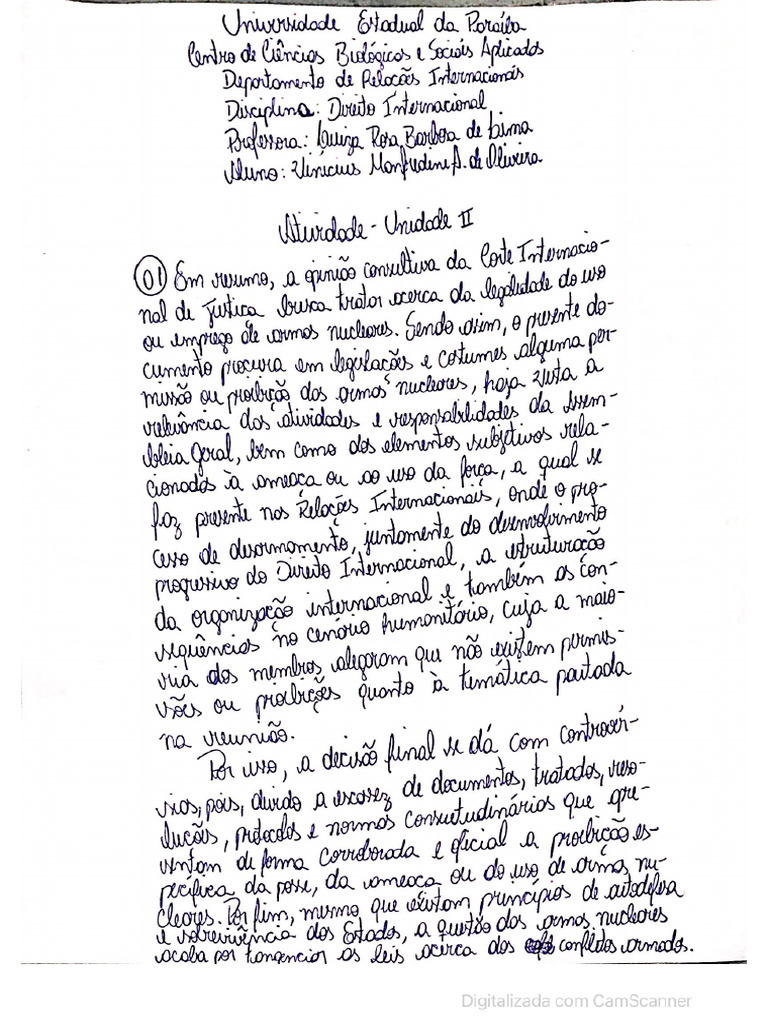 Universidade Estadual da Paraíba
Centro de Ciências Biológicas e Sociais Aplicadas
Departamento de Relações Internacionais
Disciplina: Direito Internacional
Professora: Luiza Rosa Barbosa de Lima
Aluno: Vinicius Manfredine A. de Oliveira
Atividade - Unidade II
01 Em resumo, a opinião consultiva da Corte Internacio-
nal de Justiça busca tratar acerca da legalidade do uso
ou emprego de armas nucleares. Sendo assim, o presente do-
cumento procura em legislações e costumes alguma per-
missão ou proibição das armas nucleares, haja vista a
relevância das atividades e responsabilidades da Assem-
bleia Geral, bem como dos elementos subjetivos rela-
cionados à ameaça ou ao uso da força, a qual se
faz presente nas Relações Internacionais, onde o pro-
cesso de desarmamento, juntamente do desenvolvimento
progressivo do Direito Internacional, a estruturação
da organização internacional e também as con-
sequências no cenário humanitário, cuja a maio-
ria dos membros alegaram que não existem permis-
sões ou proibições quanto à temática pautada
na reunião.
Por isso, a decisão final se dá com controvér-
sias, pois, devido a escassez de documentos, tratados, reso-
luções, protocolos e normas consuetudinárias que apre-
sentam de forma corroborada e oficial a proibição es-
pecífica da posse, da ameaça ou do uso de armas nu-
cleares. Por fim, mesmo que existam princípios de autodefesa
e sobrevivência dos Estados, a questão das armas nucleares
acaba por tangenciar as leis acerca dos conflitos armados.
Digitalizada com CamScanner